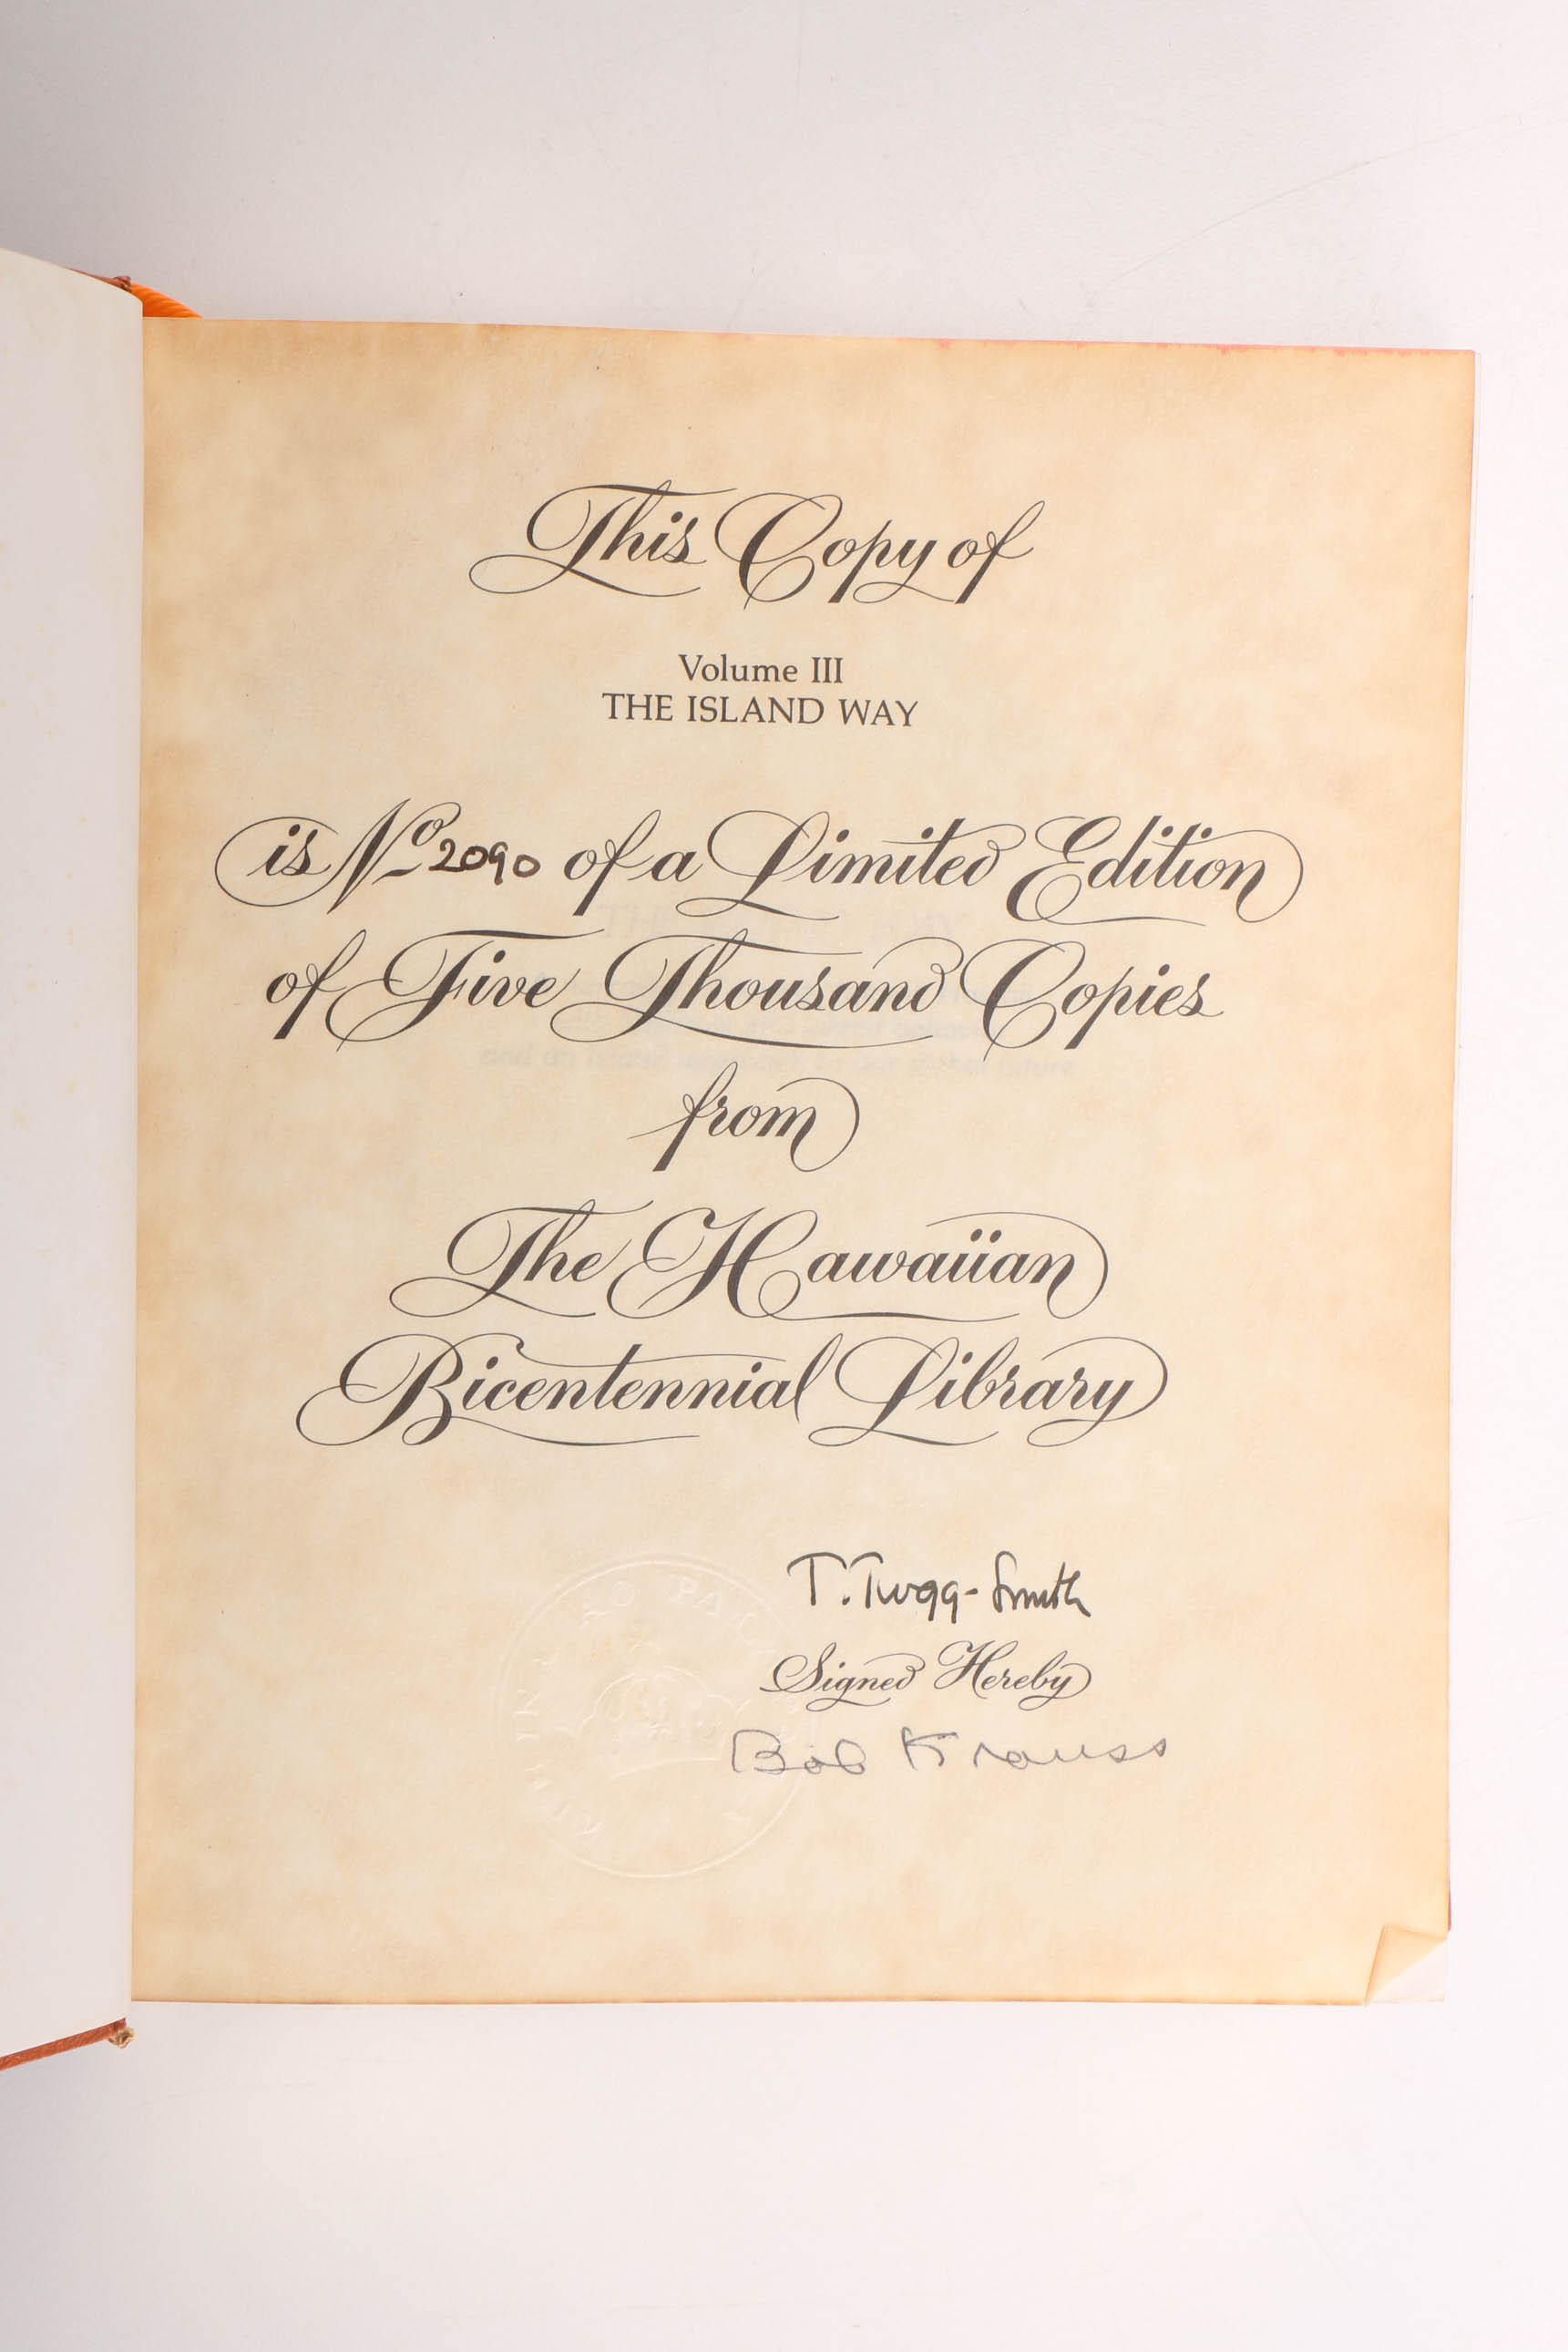 This Copy of
Volume III
THE ISLAND WAY
is No 2090 of a Limited Edition
of Five Thousand Copies
from
The Hawaiian
Bicentennial Library
T. Twigg-Smith
Signed Hereby
Bob Krauss